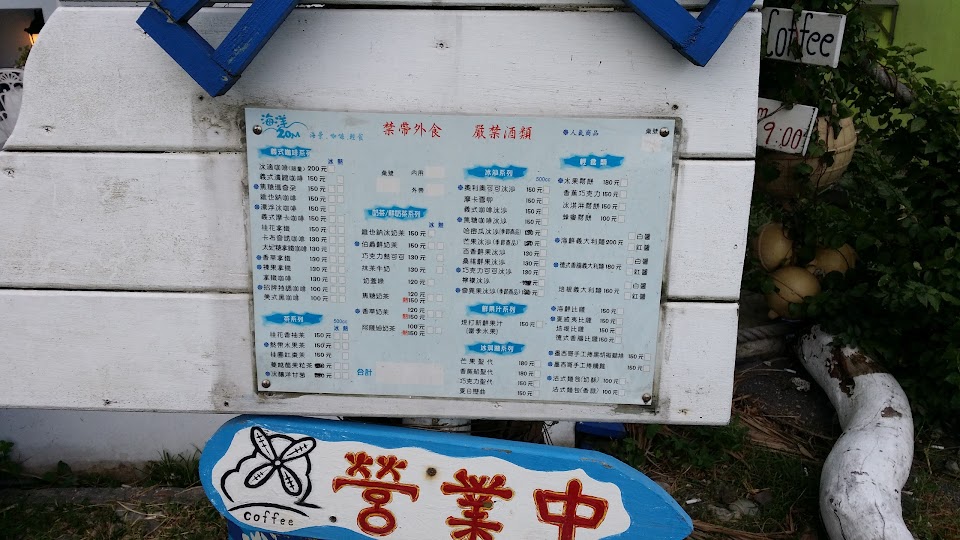 coffee
9:00
海洋
20M
禁帶外食 嚴禁酒類
人氣商品
桌號
義式咖啡系列
冰 熱
冰滴咖啡(限量) 200元
義式濃縮咖啡 150元
焦糖瑪奇朵 150元
維也納咖啡 150元
漂浮冰咖啡 150元
義式摩卡咖啡 150元
桂花拿鐵 150元
卡布奇諾咖啡 130元
太妃糖拿鐵咖啡 130元
香草拿鐵 130元
榛果拿鐵 130元
拿鐵咖啡 130元
招牌特調咖啡 100元
美式黑咖啡 100元
茶系列
500cc
冰 熱
桂花香柚茶 150元
熱帶水果茶 150元
桂圓紅棗茶 150元
桌號
內用
外帶
奶茶/鮮奶茶系列
冰 熱
維也納冰奶茶 150元
伯爵鮮奶茶 150元
巧克力熱可可 130元
抹茶牛奶 130元
奶蓋綠 120元
焦糖奶茶 120元
熱150元
香草奶茶 120元
熱150元
阿薩姆奶茶 100元
熱150元
合計
冰沙系列
500cc
奧利奧可可冰沙 150元
摩卡雪柳 150元
義式咖啡冰沙 150元
焦糖咖啡冰沙 150元
哈密瓜冰沙(季節商品) 150元
芒果冰沙(季節商品) 150元
百香鮮果冰沙 130元
桑椹鮮果冰沙 130元
巧克力可可冰沙 130元
檸檬冰沙
奇異果冰沙(季節商品)
鮮果汁系列
現打新鮮果汁 150元
(當季水果)
冰淇淋系列
芒果聖代 180元
香蕉船聖代 180元
巧克力聖代 150元
夏日戀曲 150元
輕食類
水果鬆餅 180元
香蕉巧克力 150元
冰淇淋鬆餅 150元
蜂蜜鬆餅 100元
海鮮義大利麵 200元
白醬
紅醬
德式香腸義大利麵 180元
培根義大利麵 160元
白醬
紅醬
海鮮比薩 150元
夏威夷比薩 150元
培根比薩 150元
德式香腸比薩 150元
墨西哥手工捲黑胡椒雞柳 150元
墨西哥手工捲燻雞 150元
法式麵包(奶酥) 100元
法式麵包(香蒜) 100元
coffee
營業中